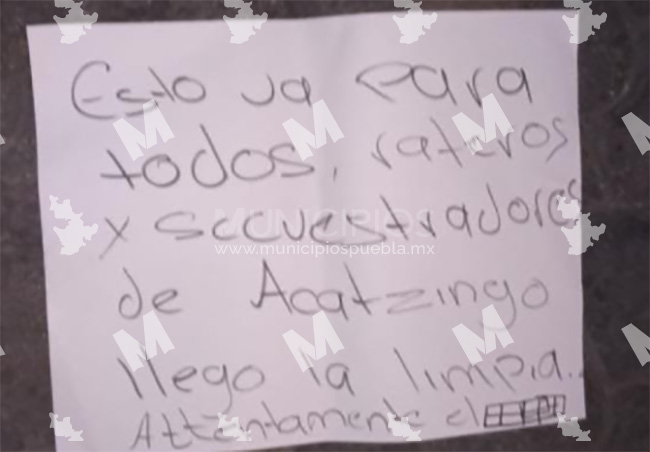 Esto va para
todos, rateros
y secuestradores
de Acatzingo
llego la limpia..
Attentamente el
MUNICIPIOS
www.municipiospuebla.mx